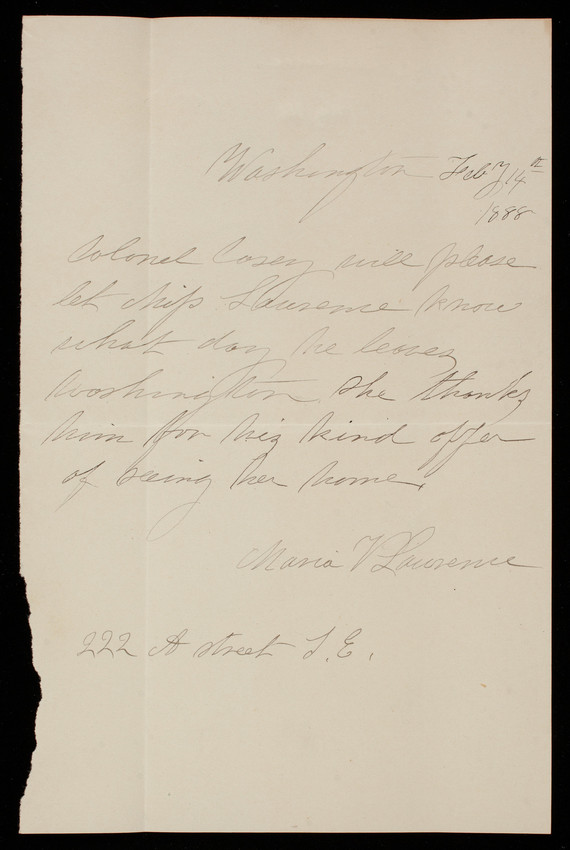 Washington Feby 14th
1888
Colonel Casey will please
let Miss Lawrence know
what day he leaves
Washington. She thanks
him for his kind offer
of seeing her home.
Maria V Lawrence
222 A street S.E.